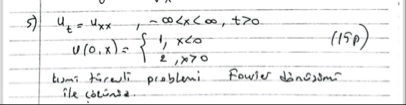 5) u_t = u_xx , -∞<x<∞, t>0
u(0,x) = { 1, x<0
2, x>0 (15p)
kısmi türevli problemi Fourier dönüşümü
ile çözünüz.